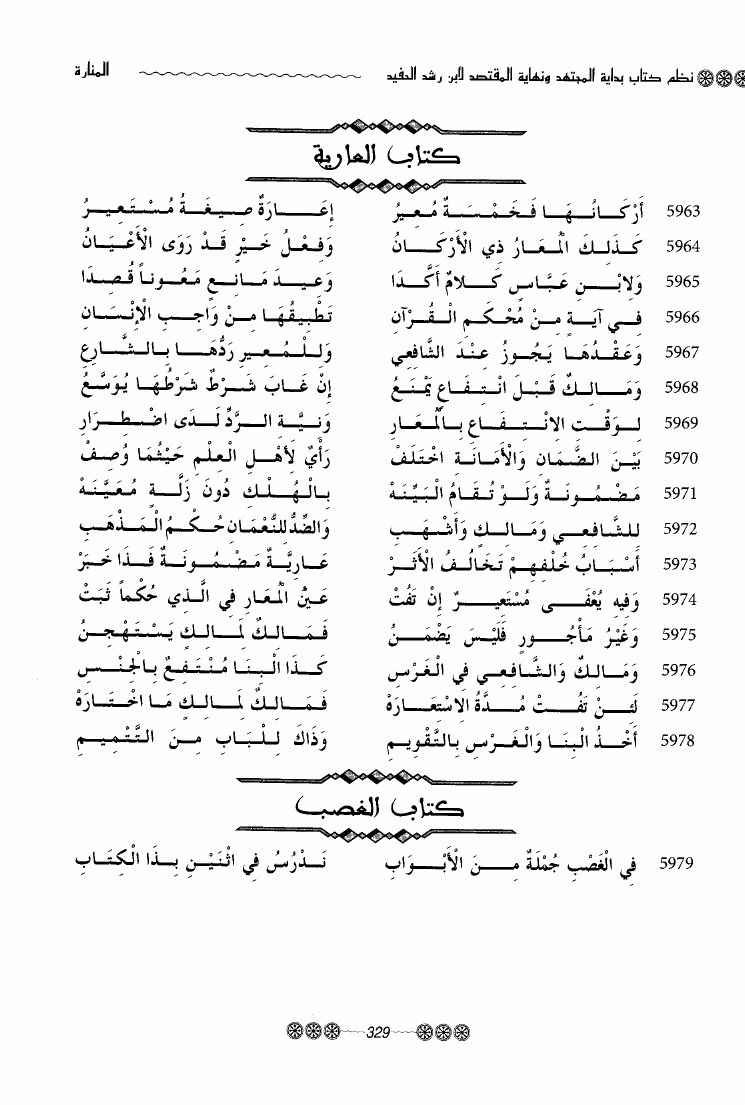 نظم كتاب بداية المجتهد ونهاية المقتصد لابن رشد الحفيد المنارة
كتاب العارية
5963 أَرْكَانُهَا فَخَمْسَةٌ مُعِيرُ إِعَارَةٌ صِيغَةُ مُسْتَعِيرُ
5964 كَذَلِكَ الْمُعَارُ ذِي الأَرْكَانُ وَفِعْلُ خَيْرٍ قَدْ رَوَى الأَعْيَانُ
5965 وَلابْنِ عَبَّاسٍ كَلامٌ أَكَّدَا وَعِيدَ مَانِعٍ مَعُوناً قُصِدَا
5966 فِي آيَةٍ مِنْ مُحْكَمِ الْقُرْآنِ تَطْبِيقُهَا مِنْ وَاجِبِ الإِنْسَانِ
5967 وَعَقْدُهَا يَجُوزُ عِنْدَ الشَّافِعِي وَلِلْمُعِيرِ رَدُّهَا بِالشَّارِعِ
5968 وَمَالِكٌ قَبْلَ انْتِفَاعٍ يَمْنَعُ إِنْ غَابَ شَرْطٌ شَرْطُهَا يُوَسَّعُ
5969 لِوَقْتِ الانْتِفَاعِ بِالْمُعَارِ وَنِيَّةِ الرَّدِّ لَدَى اضْطِرَارِ
5970 بَيْنَ الضَّمَانِ وَالأَمَانَةِ اخْتَلَفْ رَأْيٌ لأَهْلِ الْعِلْمِ حَيْثُمَا وُصِفْ
5971 مَضْمُونَةٌ وَلَوْ تُقَامُ الْبَيِّنَهْ بِالْهُلْكِ دُونَ زَلَّةٍ مُعَيَّنَهْ
5972 لِلشَّافِعِي وَمَالِكٍ وَأَشْهَبِ وَالضِّدُّ لِلنُّعْمَانِ حُكْمِ الْمَذْهَبِ
5973 أَسْبَابُ خُلْفِهِمْ تَخَالُفُ الأَثَرْ عَارِيَّةٌ مَضْمُونَةٌ فَذَا خَبَرْ
5974 وَفِيهِ يُعْفَى مُسْتَعِيرٌ إِنْ تَفُتْ عَيْنُ الْمُعَارِ فِي الَّذِي حُكْماً ثَبَتْ
5975 وَغَيْرُ مَأْجُورٍ فَلَيْسَ يَضْمَنُ فَمَالِكٌ لِمَالِكٍ يَسْتَهْجِنُ
5976 وَمَالِكٌ وَالشَّافِعِي فِي الْغَرْسِ كَذَا الْبِنَا مُنْتَفِعٌ بِالْجِنْسِ
5977 لَئِنْ تَفُتْ مُدَّةُ الاسْتِعَارَهْ فَمَالِكٌ لِمَالِكٍ مَا اخْتَارَهْ
5978 أَخْذُ الْبِنَا وَالْغَرْسِ بِالتَّقْوِيمِ وَذَاكَ لِلْبَابِ مِنَ التَّتْمِيمِ
كتاب الغصب
5979 فِي الْغَصْبِ جُمْلَةٌ مِنَ الْأَبْوَابِ نَدْرُسُ فِي اثْنَيْنِ بِذَا الْكِتَابِ
329